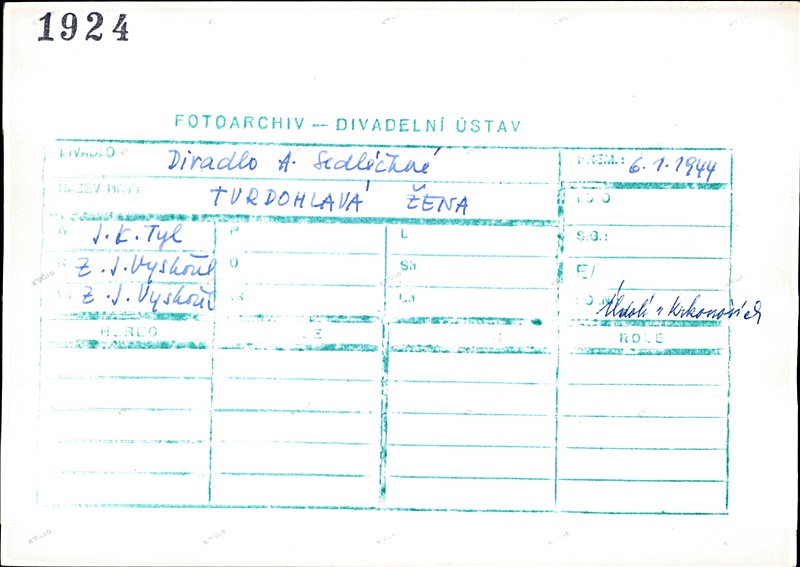 1924
FOTOARCHIV — DIVADELNÍ ÚSTAV
DIVADLO Divadlo A. Sedláčkové PREM.: 6.1.1944
NÁZEV HRY TVRDOHLAVÁ ŽENA FOTO
A J.K. Tyl P L S.G.:
R Z.J. Vyskočil O Sh E/
Z.J. Vyskočil Ch Údolí v Krkonoších
HEREC ROLE ROLE